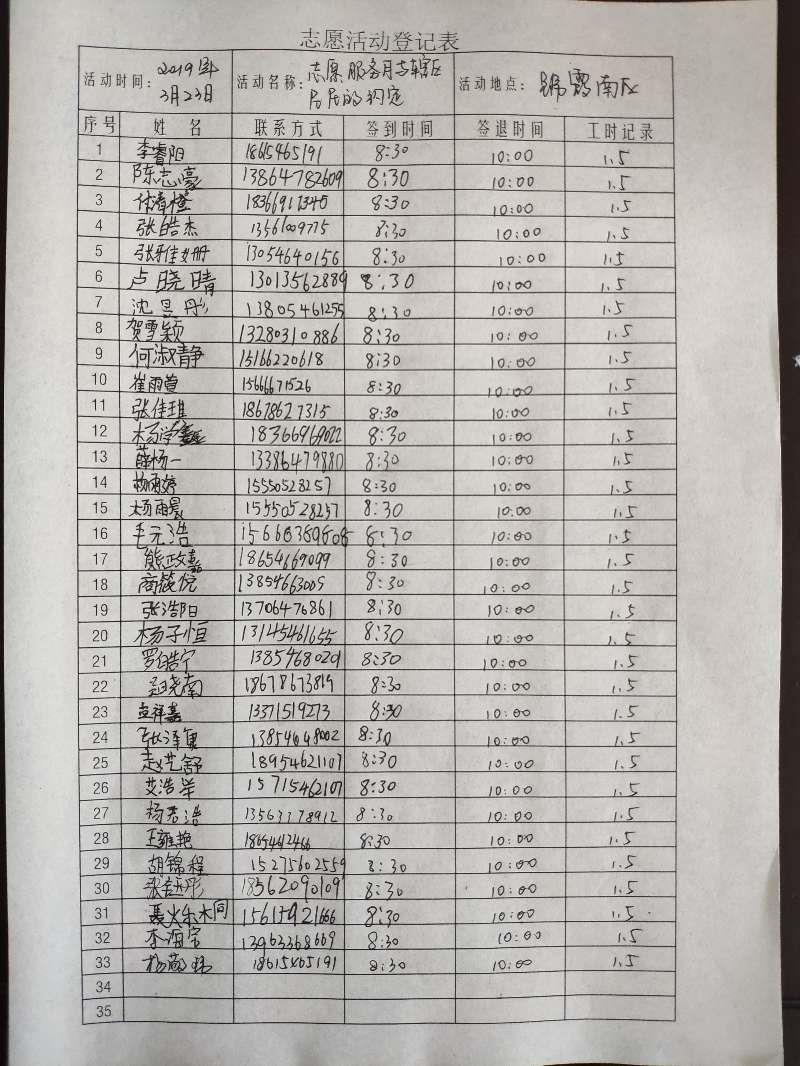 志愿活动登记表
活动时间: 2019年3月23日 活动名称: 志愿服务月与辖区居民的约定 活动地点: 锦霞南区
序号 姓名 联系方式 签到时间 签退时间 工时记录
1 李睿阳 18615465191 8:30 10:00 1.5
2 陈志豪 13864782609 8:30 10:00 1.5
3 8:30 10:00 1.5
4 张皓杰 13561009775 8:30 10:00 1.5
5 13054640156 8:30 10:00 1.5
6 卢晓晴 13013562889 8:30 10:00 1.5
7 沈昱彤 13805461255 8:30 10:00 1.5
8 贺雪颖 13280310886 8:30 10:00 1.5
9 何淑静 15166220618 8:30 10:00 1.5
10 崔雨萱 15666671526 8:30 10:00 1.5
11 张佳琪 18678627315 8:30 10:00 1.5
12 18366969022 8:30 10:00 1.5
13 薛杨一 13386479880 8:30 10:00 1.5
14 杨雨婷 15550528257 8:30 10:00 1.5
15 杨雨晨 15550528257 8:30 10:00 1.5
16 毛元浩 8:30 10:00 1.5
17 熊政嘉 18654669099 8:30 10:00 1.5
18 13854663009 8:30 10:00 1.5
19 张浩阳 13706476861 8:30 10:00 1.5
20 杨子恒 13145461655 8:30 10:00 1.5
21 罗皓宁 1385468020 8:30 10:00 1.5
22 赵晓南 18678673819 8:30 10:00 1.5
23 13371519273 8:30 10:00 1.5
24 8:30 10:00 1.5
25 赵艺舒 18954621107 8:30 10:00 1.5
26 艾浩举 15715462107 8:30 10:00 1.5
27 13563378912 8:30 10:00 1.5
28 王雍艳 8:30 10:00 1.5
29 胡锦程 15275602559 8:30 10:00 1.5
30 18562090109 8:30 10:00 1.5
31 聂火乐木同 15615921666 8:30 10:00 1.5
32 13963368669 8:30 10:00 1.5
33 18615465191 8:30 10:00 1.5
34
35